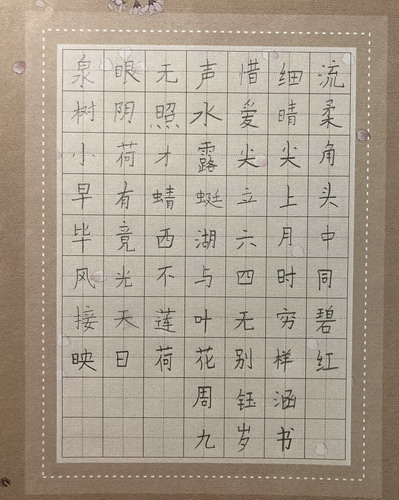 泉眼无声惜细流
树阴照水爱晴柔
小荷才露尖尖角
早有蜻蜓立上头
毕竟西湖六月中
风光不与四时同
接天莲叶无穷碧
映日荷花别样红
周钰涵
九岁书